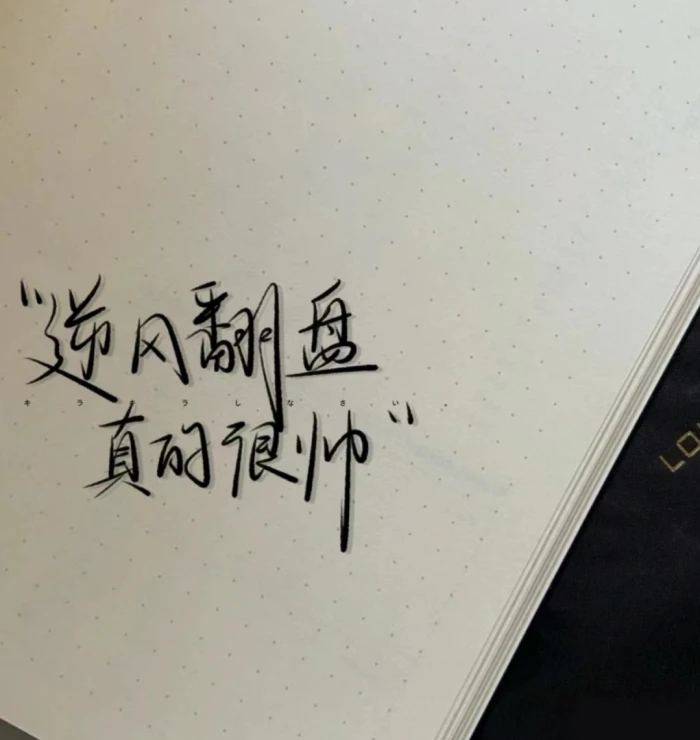 “逆风翻盘
キラキラしなさい.
真的很帅”